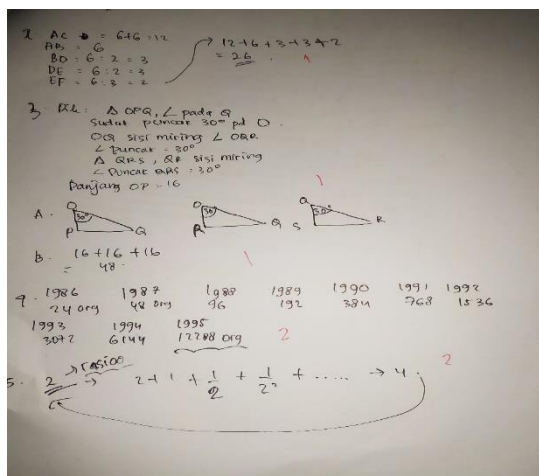 2 AC = 6+6 = 12
AB = 6
BD = 6 : 2 = 3
DE = 6 : 2 = 3
EF = 6 : 3 = 2
12 + 6 + 3 + 3 + 2
= 26 . 1
3. Dik : Δ OPQ, ∠ pada Q
Sudut puncak 30° pd O .
OQ sisi miring ∠ OQR
∠ puncak = 30°
Δ QRS , QR sisi miring
∠ Puncak QRS = 30°
Panjang OP = 16
1
A . O 30° P Q
O 30° R Q
Q 30° S R
B . 16 + 16 + 16
= 48 .
1
4 . 1986 1987 1988 1989 1990 1991 1992
24 org 48 org 96 192 384 768 1536
1993 1994 1995
3072 6144 12288 org 2
5 . 2 → rasio
→ 2 + 1 + 1/2 + 1/2² + ..... → 4 . 2